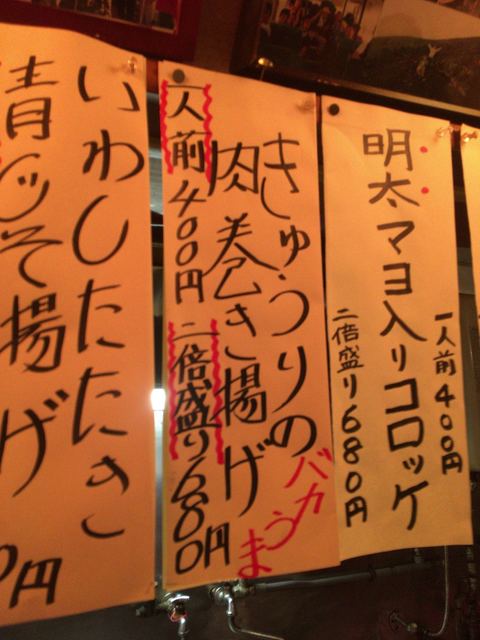 明太マヨ入りコロッケ
一人前400円
二倍盛り680円
きゅうりの
肉巻き揚げ
バカうま
一人前400円
二倍盛り680円
いわしたたき
青じそ揚げ
0円